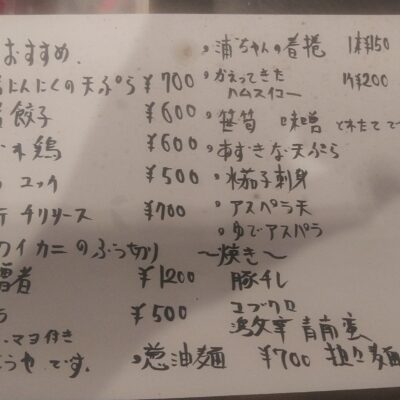 おすすめ.
にんにくの天ぷら ¥700
餃子 ¥600
鶏 ¥600
ユッケ ¥500
チリソース ¥700
ワイカニのぶつ切り
¥1200
¥500
マヨ付き
です.
。浦ちゃんの春捲 1本¥150
。かえってきた
ハムスイコー 1ケ¥200
。笹筍 味噌
。あすきな天ぷら
。水茄子刺身
。アスパラ天
。ゆでアスパラ
〜焼き〜
豚キム
コブクロ
激辛 青南蛮
。葱油麺 ¥700 担々麺